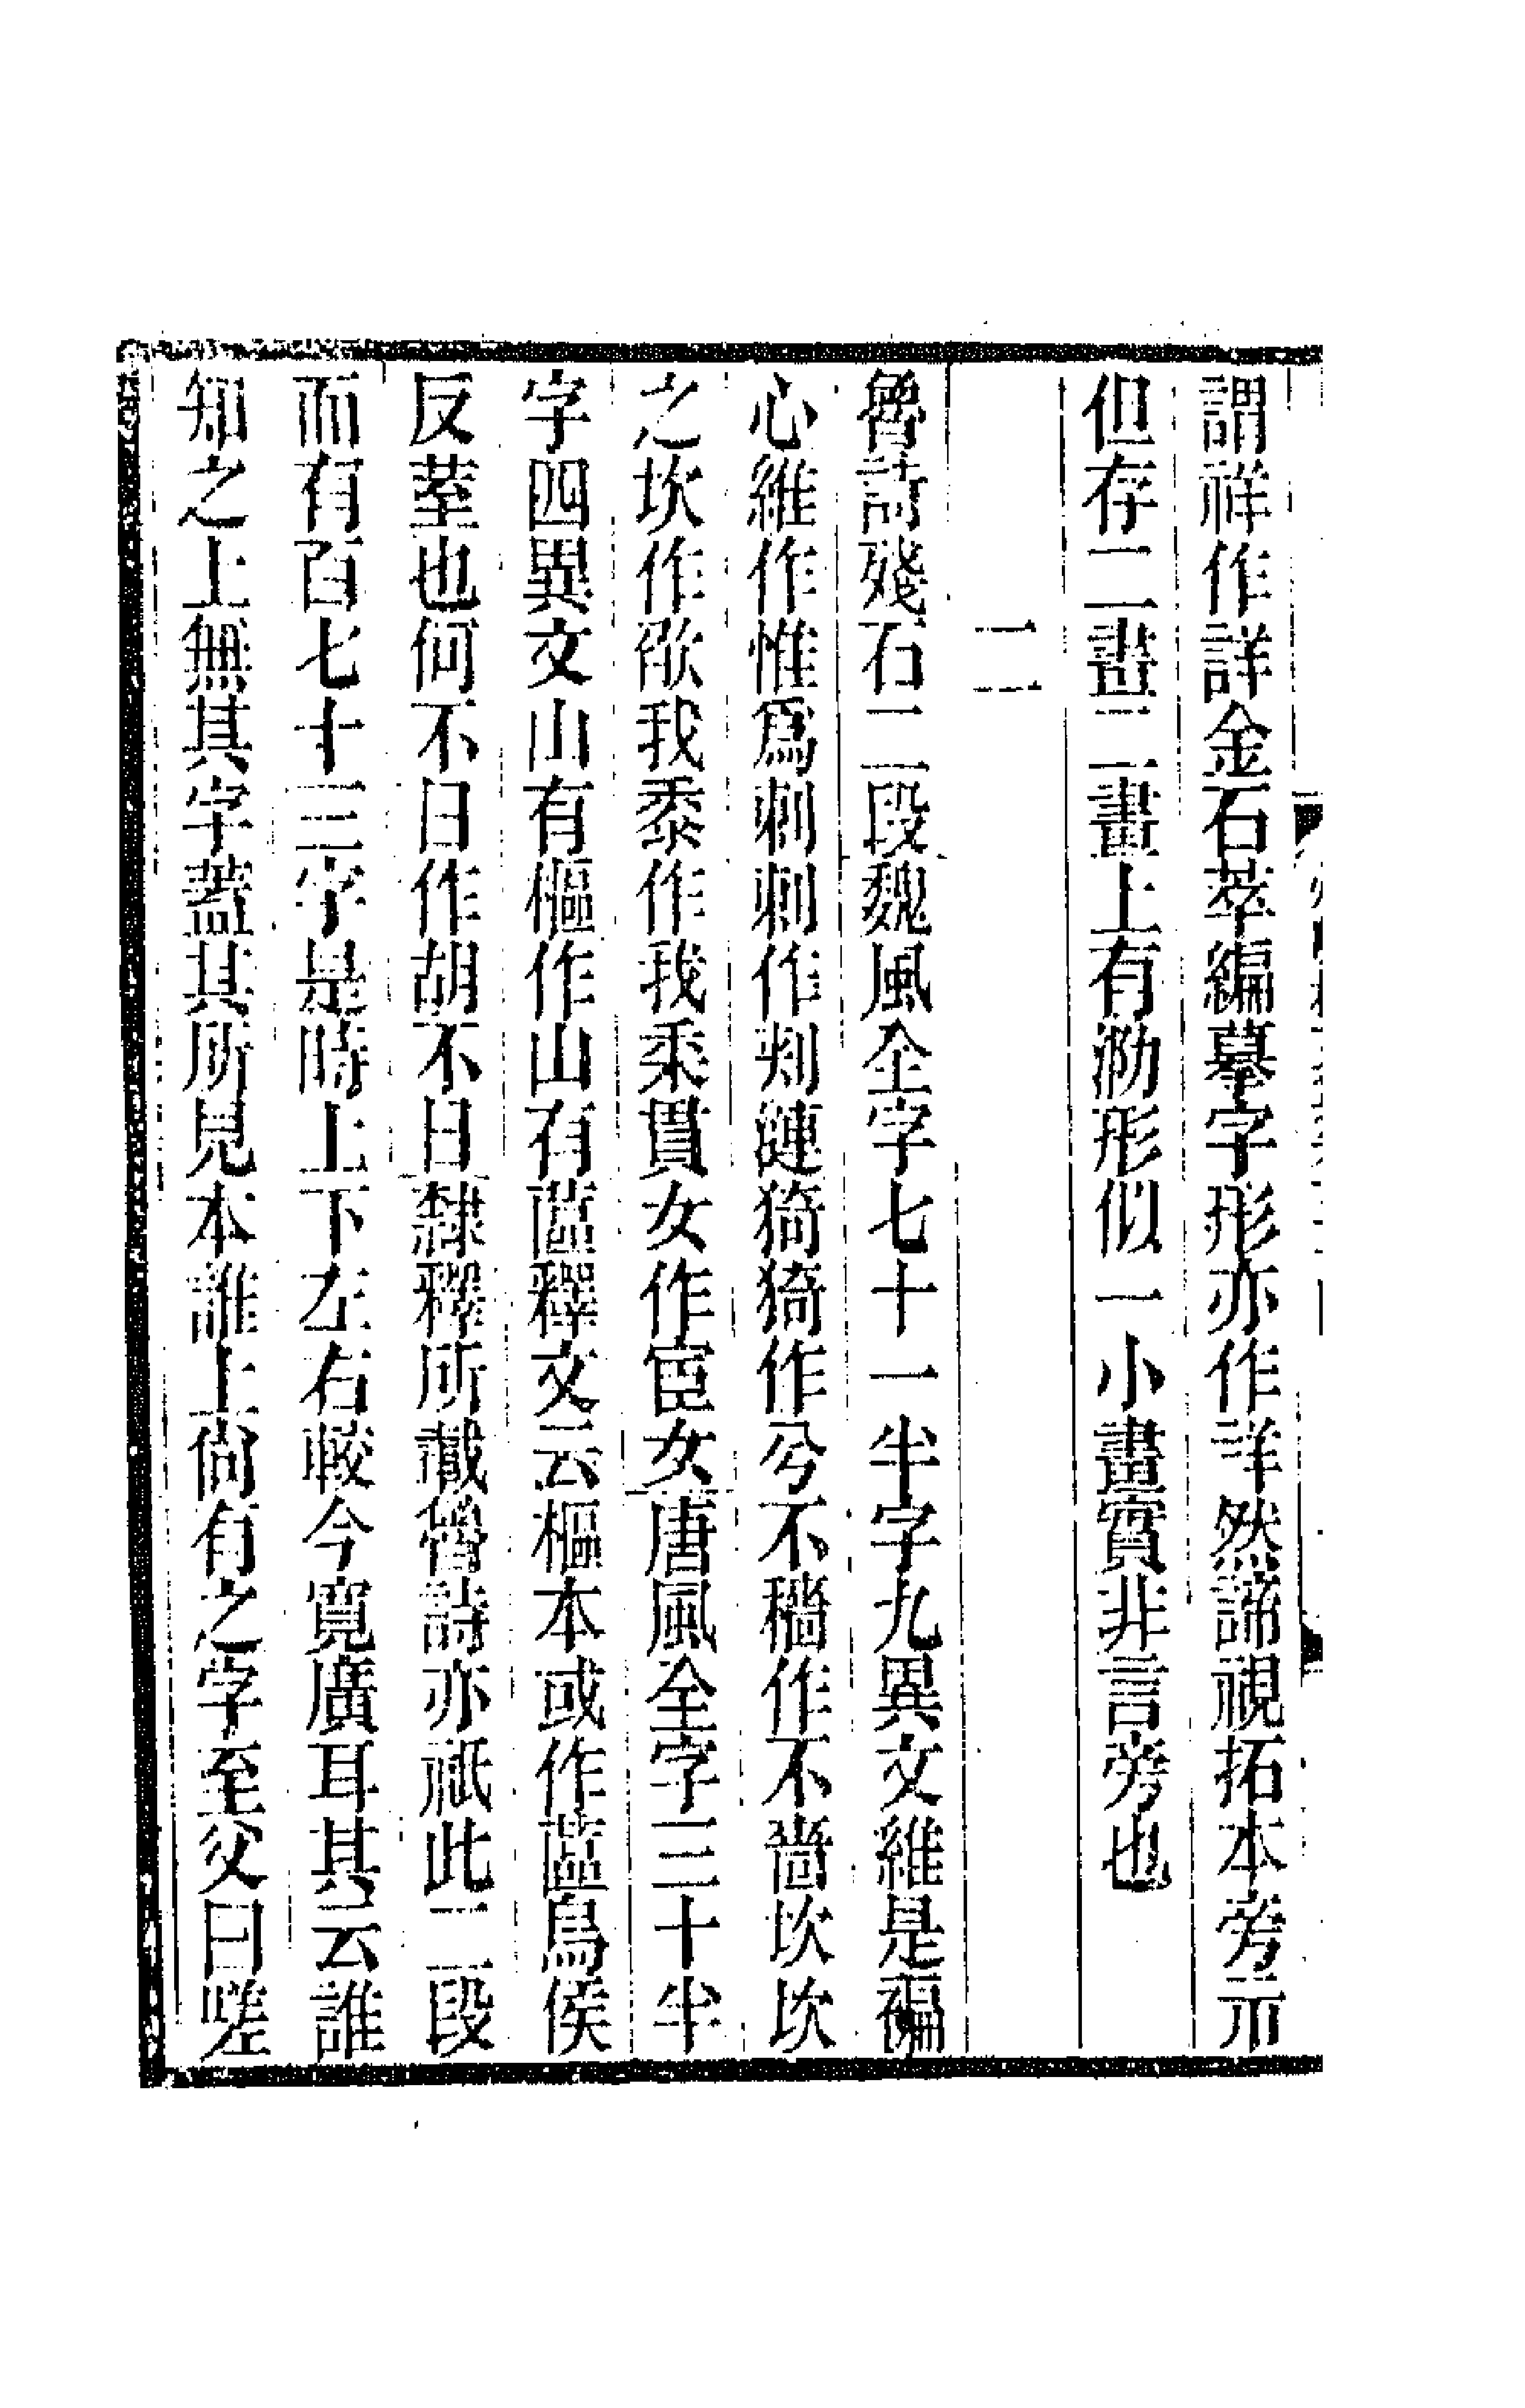 謂祥作詳金石萃編摹字形亦作詳然諦視拓本旁示
但存二畫二畫上有泐形似一小畫實非言旁也
二
魯詩殘石二段魏風全字七十一半字九異文維是褊
心維作惟爲刺刺作刾漣猗猗作兮不穡作不嗇坎坎
之坎作欿我黍作我黍貫女作宦女唐風全字三十半
字四異文山有樞作山有蓲釋文云樞本或作蓲烏侯
反荎也何不日作胡不日隸釋所載魯詩亦祇此二段
而有百七十三字是時上下左右較今寬廣耳其云誰
知之上無其字蓋其所見本誰上尚有之字至父曰嗟